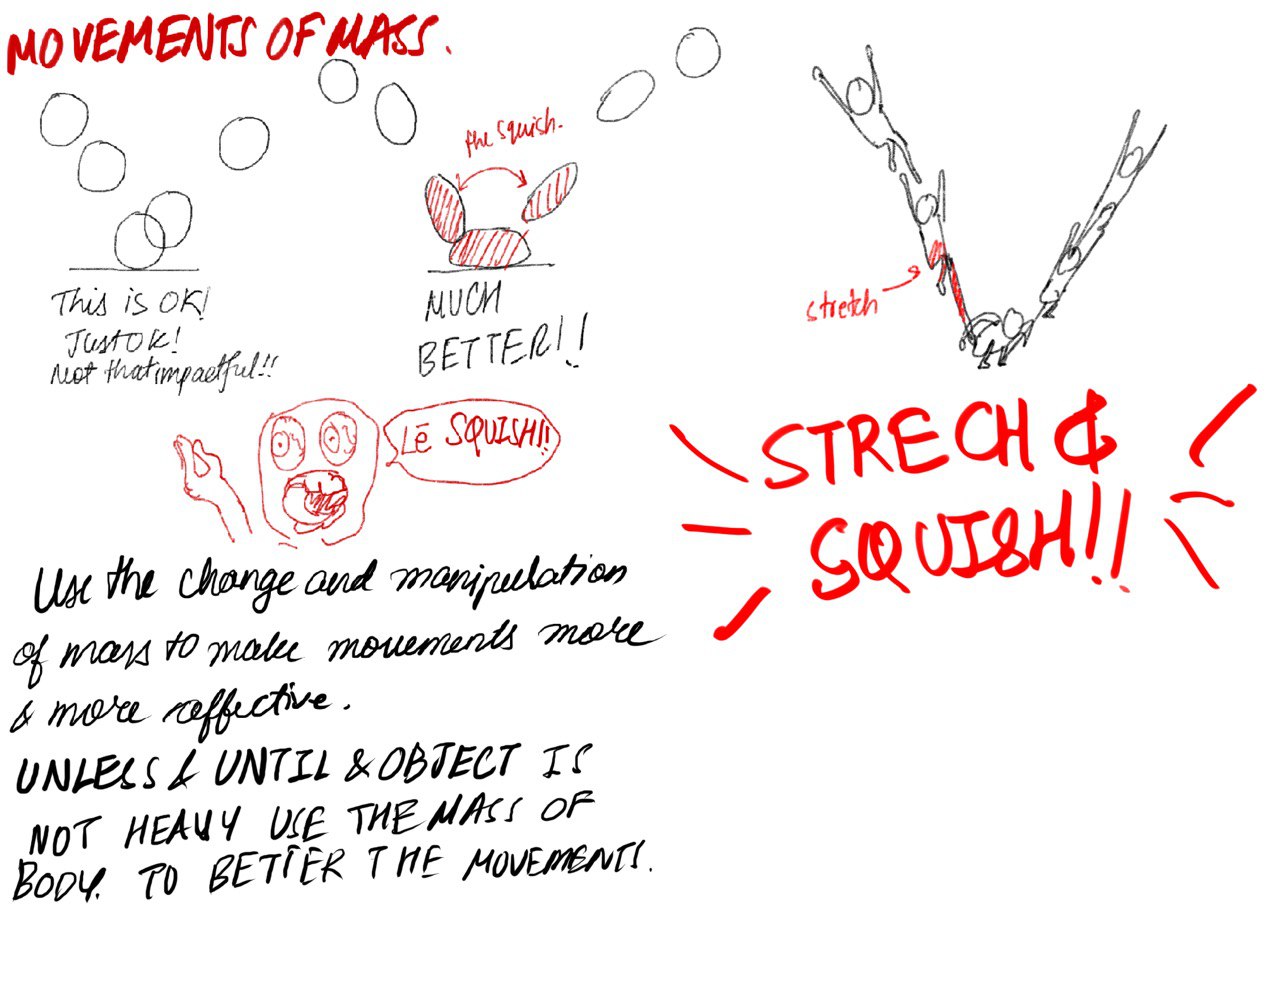 MOVEMENTS OF MASS.
the squish.
This is OK!
Just OK!
Not that impactful!!
MUCH
BETTER!!
stretch
LĒ SQUISH!!
STRECH &
SQUISH!!
Use the change and manipulation
of mass to make movements more
& more effective.
UNLESS & UNTIL & OBJECT IS
NOT HEAVY USE THE MASS OF
BODY. TO BETTER THE MOVEMENTS.